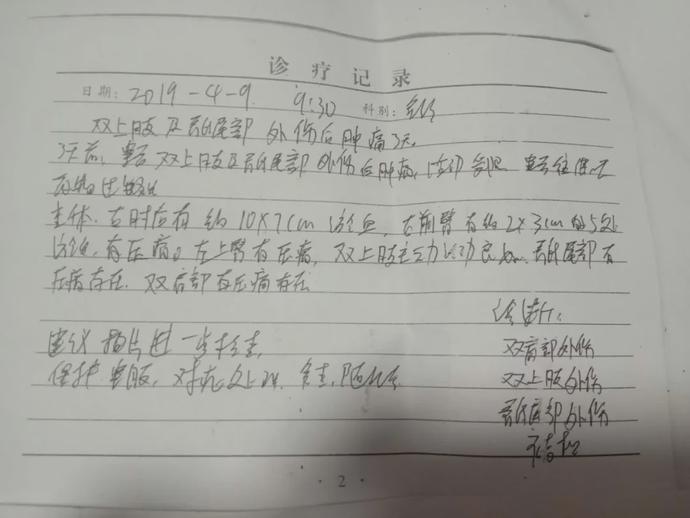 诊疗记录
日期: 2019-4-9. 9:30 科别:
双上肢及骶尾部外伤后肿痛3天.
3天前, 患者双上肢及骶尾部外伤后肿痛, 患者往体
主体. 右肘应有约10X7cm淤血, 右前臂有约2X3cm的5处
淤血, 有压痛。左上臂有压痛, 双上肢主动活动良好. 骶尾部有
压痛存在. 双肩部有压痛存在
诊断:
建议拍片进一步检查,
双肩部外伤
保护患肢, 对症处理. 休息, 随诊.
双上肢外伤
骶尾部外伤
· 2 ·